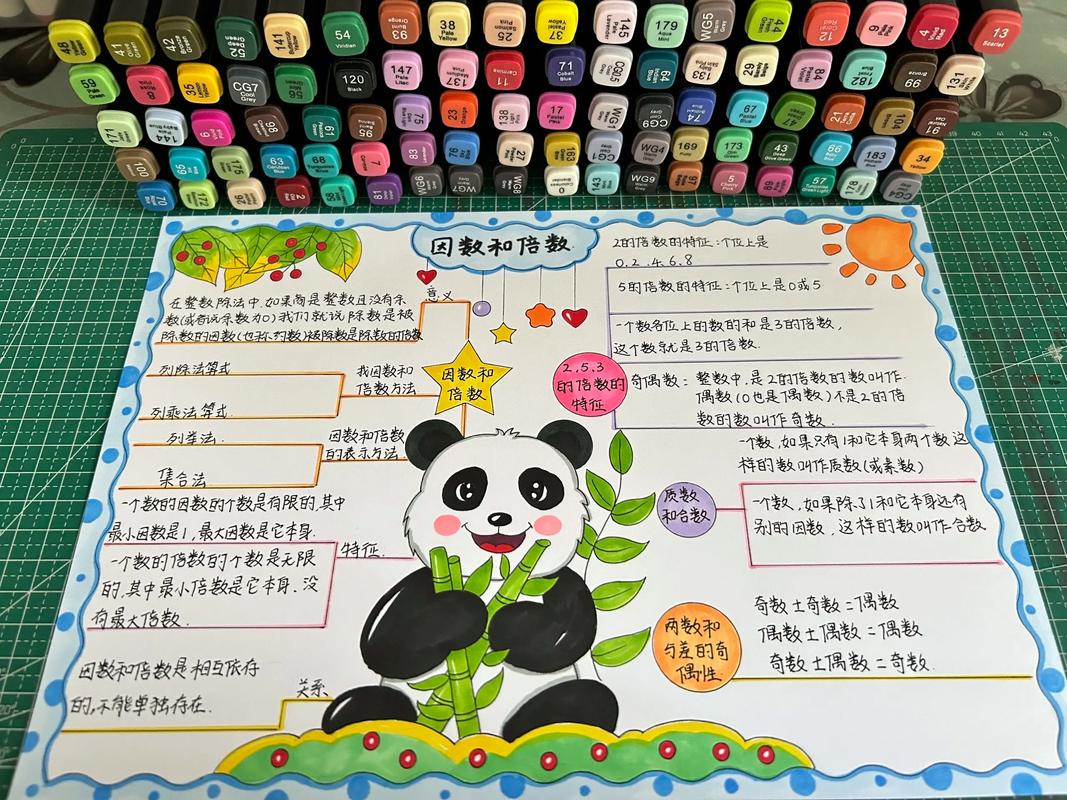 48
41
42
52
Deep Green
141
54
Viridian
93
Burnt Orange
38
Pale Yellow
25
Salmon Pink
37
Pastel Yellow
145
Pale Lavender
179
WG5
12
9
4
13
Scarlet
59
8
35
CG7
Cool Grey
56
120
Black
147
Pale Lilac
137
Medium Pink
11
Carmine
71
Cobalt Blue
64
133
29
84
182
99
Bronze
131
171
144
6
96
61
95
75
23
Orange
138
Light Pink
17
Pastel Pink
WG1
CG6
74
67
Pastel Blue
47
21
104
91
100
63
Cerulean Blue
68
Turquoise Blue
7
83
Lavender
76
27
163
CG1
WG4
169
173
Dim Green
43
Deep Olive Green
66
183
34
Yellow
70
172
2
58
81
WG6
WG7
WG8
0
143
WG9
Warm Grey
97
5
Cherry Pink
89
57
Turquoise Green Light
178
CG4
因数和倍数
在整数除法中.如果商是整数且没有余
数(或者说余数为0)我们就说除数是被
除数的因数(也称约数)被除数是除数的倍数
意义
列除法算式
列乘法算式.
找因数和
倍数方法
因数和
倍数
列举法.
集合法
因数和倍数
的表示方法
一个数的因数的个数是有限的,其中
最小因数是1,最大因数是它本身.
一个数的倍数的个数是无限
的,其中最小倍数是它本身、没
有最大倍数.
特征.
因数和倍数是相互依存
的,不能单独存在.
关系.
2的倍数的特征:个位上是
0.2.4.6.8
5的倍数的特征:个位上是0或5
一个数各位上的数的和是3的倍数,
这个数就是3的倍数.
2,5,3
的倍数的
特征
奇偶数: 整数中,是2的倍数的数叫作.
偶数(0也是偶数)不是2的倍
数的数叫作奇数.
质数
和合数
一个数,如果只有1和它本身两个数这
样的数叫作质数(或素数)
一个数,如果除了1和它本身还有
别的因数,这样的数叫作合数
两数和
与差的奇
偶性.
奇数±奇数=偶数
偶数±偶数=偶数
奇数±偶数=奇数.